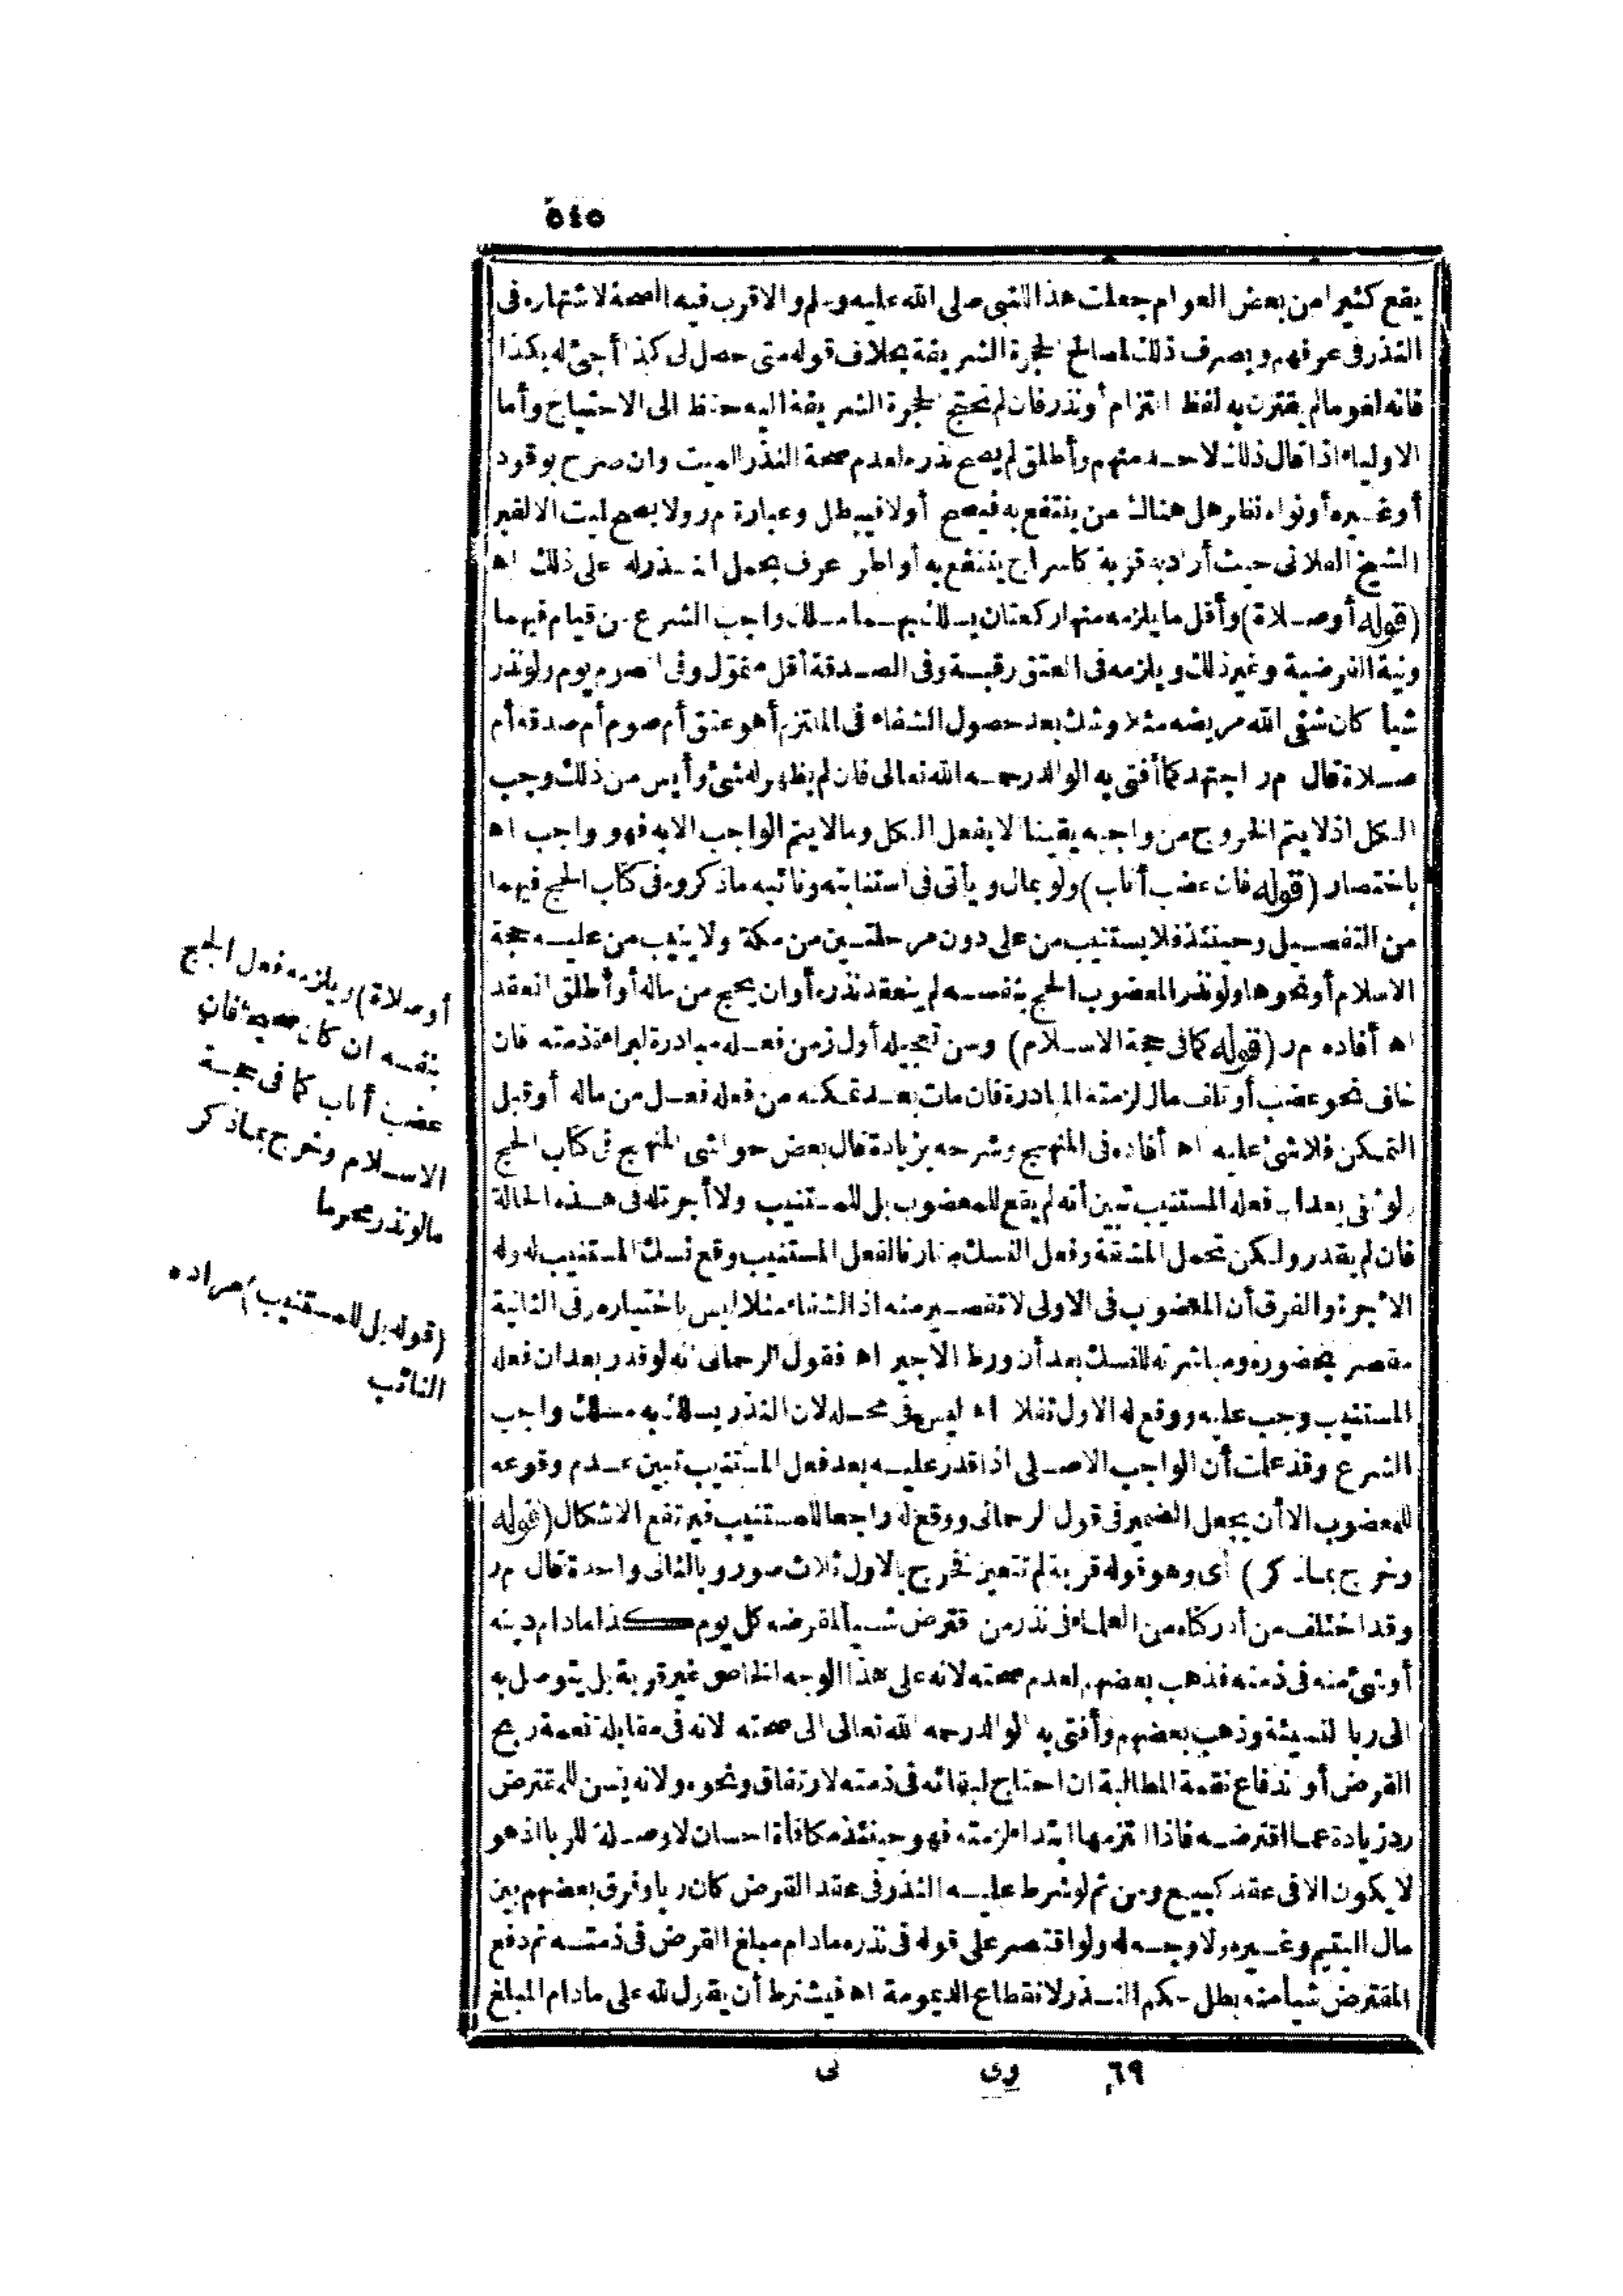 ٥٤٥
يقع كثيرا من بعض العوام جعلت هذا للنبى صلى الله عليه وسلم والاقرب فيه الصحة لاشتهاره فى
النذر فى عرفهم ويصرف ذلك لمصالح الحجرة الشريفة بخلاف قوله متى حصل لى كذا أجئ له بكذا
فانه لغو مالم يقترن به لفظ التزام أو نذر فان لم تحتج الحجرة الشريفة اليه حفظ الى الاحتياج وأما
الاولياء اذا قال ذلك لاحد منهم وأطلق لم يصح نذره لعدم صحة النذر للميت وان صرح بوقود
أو غيره أو نواه نظر هل هناك من ينتفع به فيصح أولا فيبطل وعبارة م ر ولا يصح لميت الا لقبر
الشيخ الفلانى حيث أراد به قربة كاسراج ينتفع به أو اطرد عرف بحمل النذر له على ذلك اه
(قوله أو صلاة) وأقل ما يلزمه منها ركعتان يسلك بهما مسلك واجب الشرع من قيام فيهما
ونية الفرضية وغير ذلك ويلزمه فى العتق رقبة وفى الصدقة أقل متمول وفى الصوم يوم ولو نذر
شيأ كان شفى الله مريضه مثلا وشك بعد حصول الشفاء فى الملتزم أهو عتق أم صوم أم صدقة أم
صلاة قال م ر اجتهد كما أفتى به الوالد رحمه الله تعالى فان لم يظهر له شئ وأيس من ذلك وجب
الكل اذ لا يتم الخروج من واجبه يقينا الا بفعل الكل وما لا يتم الواجب الا به فهو واجب اه
باختصار (قوله فان عضب أناب) ولو بمال ويأتى فى استنابته ونائبه ماذكروه فى كتاب الحج فيهما
من التفصيل وحينئذ فلا يستنيب من على دون مرحلتين من مكة ولا ينيب من عليه حجة
الاسلام أو نحوها ولو نذر المعضوب الحج بنفسه لم ينعقد نذره أو ان يحج من ماله أو أطلق انعقد
اه أفاده م ر (قوله كما فى حجة الاسلام) وسن تعجيله أول زمن فعله مبادرة لبراءة ذمته فان
خاف نحو عضب أو تلف مال لزمته المبادرة فان مات بعد تمكنه من فعله فعل من ماله أو قبل
التمكن فلا شئ عليه اه أفاده فى المنهج وشرحه بزيادة قال بعض حواشى المنهج فى كتاب الحج
ولو شفى بعد فعله المستنيب تبين أنه لم يقع للمعضوب بل للمستنيب ولا أجرة له فى هذه الحالة
فان لم يقدر ولكن تحمل المشقة وفعل النسك مقارنا لفعل المستنيب وقع نسك المستنيب له وله
الأجرة والفرق أن المعضوب فى الاولى لا تقصير منه اذ الشفاء مثلا ليس باختياره وفى الثانية
مقصر بحضوره ومباشرته للنسك بعد أن ورط الاجير اه فقول الرحمانى انه لو قدر بعد ان فعله
المستنيب وجب عليه ووقع له الاول نفلا اه ليس فى محله لان النذر يسلك به مسلك واجب
الشرع وقد علمت أن الواجب الاصلى اذا قدر عليه بعد فعل المستنيب تبين عدم وقوعه
للمعضوب الا أن يجعل الضمير فى قول الرحمانى ووقع له راجعا للمستنيب فيرتفع الاشكال (قوله
وخرج بماذكر) أى وهو قوله قربة لم تتعين فخرج بالاول ثلاث صور وبالثانى واحدة قال م ر
وقد اختلف من أدركناه من العلماء فى نذر من قترض شيأ لمقرضه كل يوم كذا مادام دينه
أو شئ منه فى ذمته فذهب بعضهم لعدم صحته لانه على هذا الوجه الخاص غير قربة بل يتوصل به
الى ربا النسيئة وذهب بعضهم وأفتى به الوالد رحمه الله تعالى الى صحته لانه فى مقابلة نعمة ربح
القرض أو اندفاع نقمة المطالبة ان احتاج لبقائه فى ذمته لارتفاق ونحوه ولانه يسن للمقترض
رد زيادة عما اقترضه فاذا التزمها ابتداء لزمته فهو حينئذ مكافأة احسان لا وصلة للربا اذ هو
لا يكون الا فى عقد كبيع ومن ثم لو شرط عليه النذر فى عقد القرض كان ربا وفرق بعضهم بين
مال اليتيم وغيره ولا وجه له ولو اقتصر على قوله فى نذره مادام مبلغ القرض فى ذمته ثم دفع
المقترض شيأ منه بطل حكم النذر لانقطاع الديمومة اه فيشترط أن يقول لله على مادام المبلغ
أو صلاة) ويلزمه فعل الحج
بنفسه ان كان صحيحا فان
عضب أناب كما فى حجة
الاسلام وخرج بماذكر
مالو نذر محرما
(قوله بل للمستنيب) مراده
النائب
٦٩ وى نى